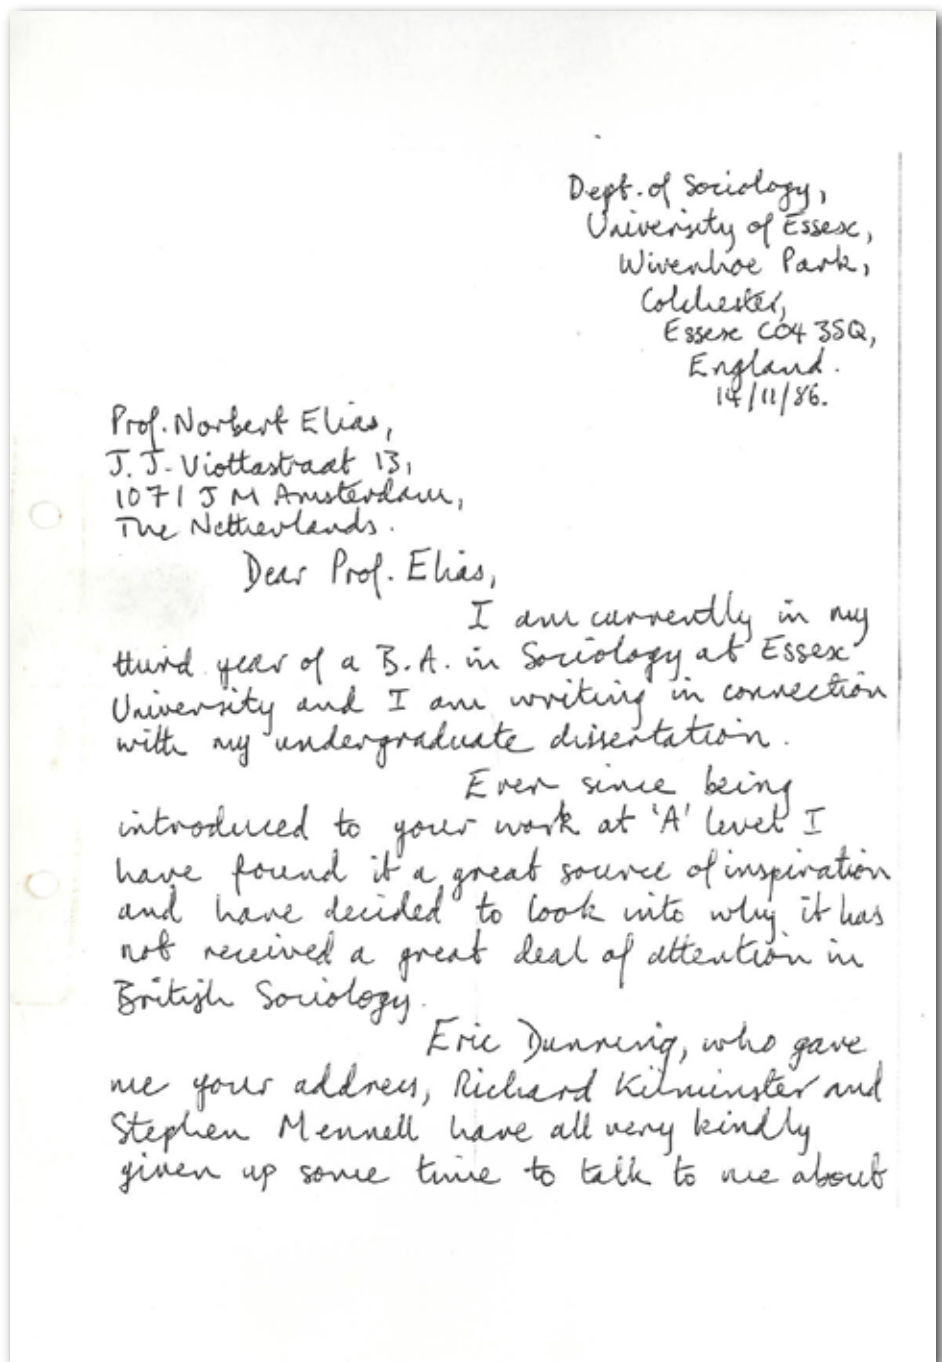 Dept. of Sociology,
University of Essex,
Wivenhoe Park,
Colchester,
Essex CO4 3SQ,
England.
14/11/86.
Prof. Norbert Elias,
J. J. Viottastraat 13,
1071 J M Amsterdam,
The Netherlands.
Dear Prof. Elias,
I am currently in my
third year of a B.A. in Sociology at Essex
University and I am writing in connection
with my undergraduate dissertation.
Ever since being
introduced to your work at 'A' level I
have found it a great source of inspiration
and have decided to look into why it has
not received a great deal of attention in
British Sociology.
Eric Dunning, who gave
me your address, Richard Kilminster and
Stephen Mennell have all very kindly
given up some time to talk to me about